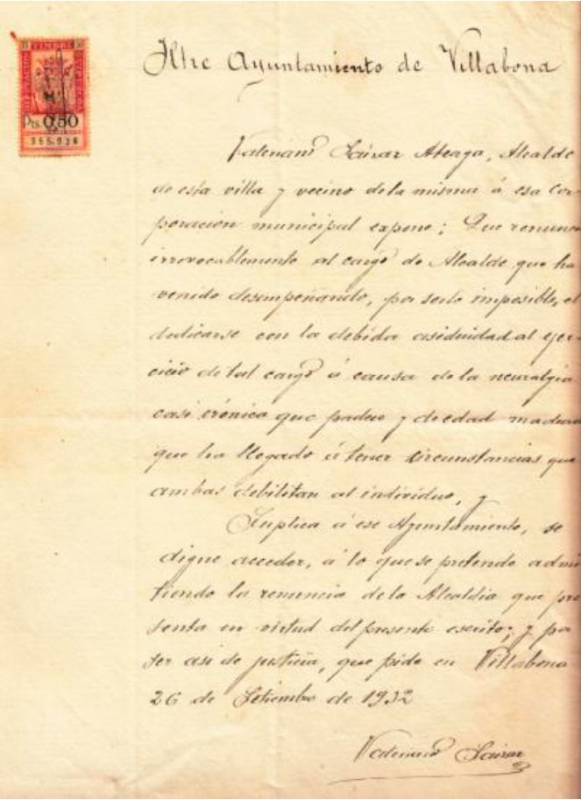 TIMBRE
Pts. 0,50
Iltre Ayuntamiento de Villabona
Valeriano Saizar Ateaga, Alcalde
de esta villa y vecino de la misma á esa cor-
poración municipal expone; Que renuncia
irrevocablemente al cargo de Alcalde que ha
venido desempeñando, por serle imposible, el
dedicarse con la debida asiduidad al ejer-
cicio de tal cargo á causa de la neuralgia
casi crónica que padece y de edad madura
que ha llegado á tener circunstancias que
ambas debilitan al individuo, y
Suplica á ese Ayuntamiento, se
digne acceder, á lo que se pretende admi
tiendo la renuncia de la Alcaldía que pre
senta en virtud del presente escrito; y por
ser así de justicia, que pide en Villabona
26 de Setiembre de 1932
Valeriano Saizar